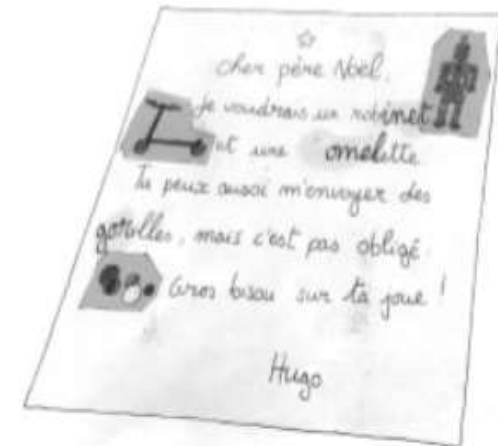 Cher père Noël,
Je voudrais un robinet
et une omelette.
Tu peux aussi m'envoyer des
gorilles, mais c'est pas obligé.
Gros bisou sur ta joue !
Hugo